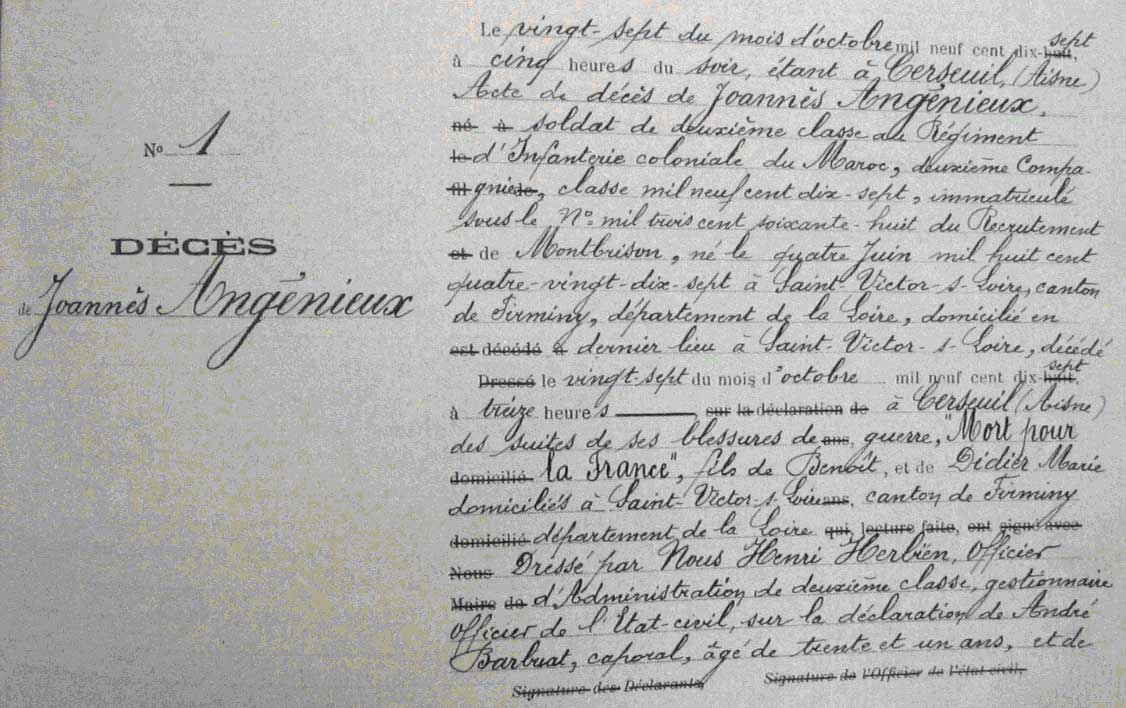 N° 1
DÉCÈS
de Joannès Angénieux
Le vingt-sept du mois d'octobre mil neuf cent dix-huit, sept
à cinq heures du soir, étant à Cerseuil, (Aisne)
Acte de décès de Joannès Angénieux,
né à soldat de deuxième classe au Régiment
le d'Infanterie coloniale du Maroc, deuxième Compa-
fil gniede, classe mil neuf cent dix-sept, immatriculé
sous le N° mil trois cent soixante-huit du Recrutement
et de Montbrison, né le quatre Juin mil huit cent
quatre-vingt-dix-sept à Saint-Victor-s-Loire, canton
de Firminy, département de la Loire, domicilié en
est décédé à dernier lieu à Saint-Victor-s-Loire, décédé
Dressé le vingt-sept du mois d'octobre mil neuf cent dix-huit, sept
à treize heures, sur la déclaration de à Cerseuil (Aisne)
des suites de ses blessures de ans, guerre, "Mort pour
domicilié la France", fils de Benoît, et de Didier Marie
domiciliés à Saint-Victor-s-Loire ans, canton de Firminy
domicilié département de la Loire qui, lecture faite, ont signé avec
Nous Dressé par Nous Henri Herbien, Officier
Maire de d'Administration de deuxième classe, gestionnaire
Officier de l'Etat-civil, sur la déclaration de André
Barbuat, caporal, âgé de trente et un ans, et de
Signature des Déclarants, Signature de l'Officier de l'état civil,